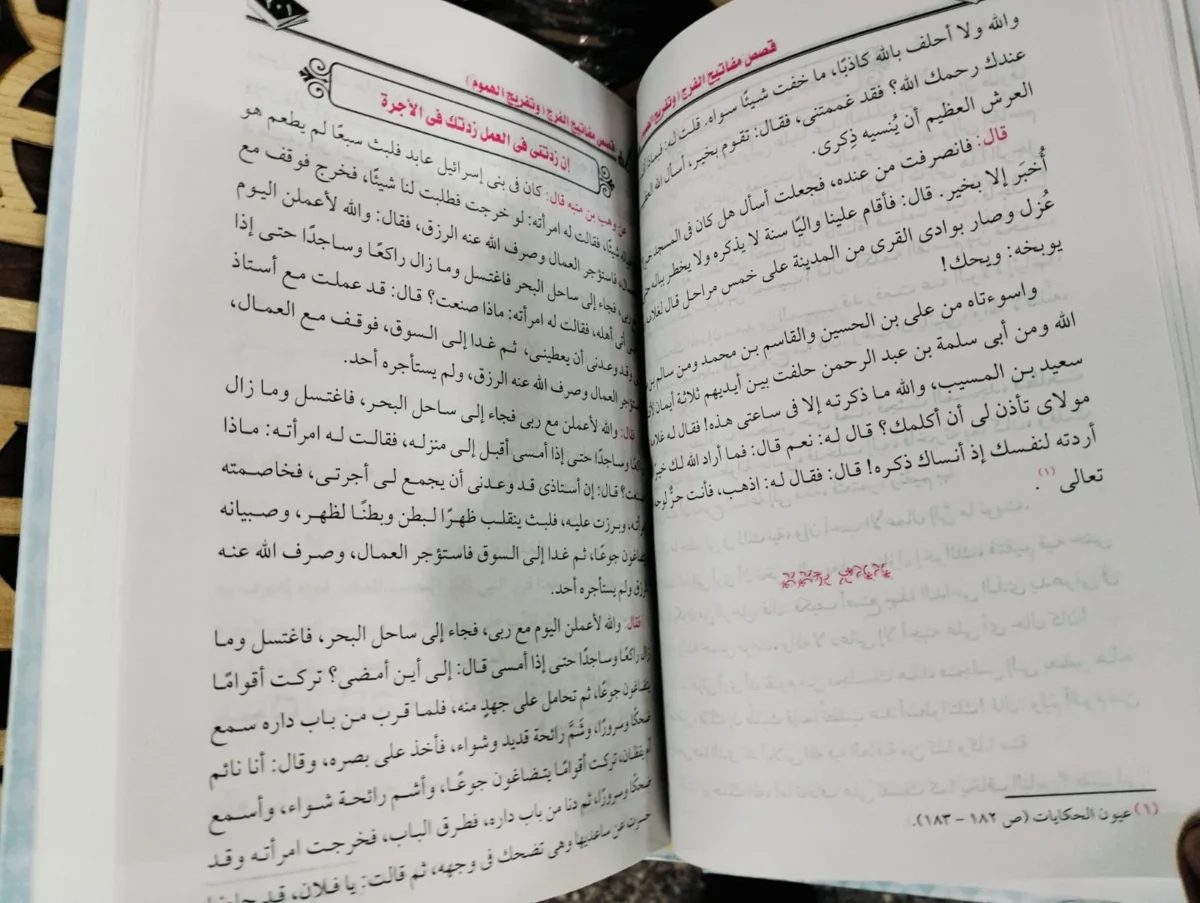 قصص مفاتيح الفرج (وتفريج الهموم
والله ولا أحلف بالله كاذبًا، ما خفت شيئًا سواه. قلت له:
عندك رحمك الله؟ فقد غممتنى، فقال: تقوم بخير، أسأل الله
العرش العظيم أن يُنسيه ذِكرى.
قال: فانصرفت من عنده، فجعلت أسأل هل كان فى المسجد
أُخبَر إلا بخير. قال: فأقام علينا واليًا سنة لا يذكره ولا يخطر بباله
عُزل وصار بوادى القرى من المدينة على خمس مراحل قال
يوبخه: ويحك!
واسوءتاه من على بن الحسين والقاسم بن محمد ومن سالم بن
الله ومن أبى سلمة بن عبد الرحمن حلفت بين أيديهم ثلاثة أيمان
سعيد بن المسيب، والله ما ذكرته إلا فى ساعتى هذه! فقال له
مولاى تأذن لى أن أكلمك؟ قال له: نعم قال: فما أراد الله لك
أردته لنفسك إذ أنساك ذكره! قال: فقال له: اذهب، فأنت حرٌّ
تعالى (١).
(١) عيون الحكايات (ص ١٨٢ - ١٨٣).
قصص مفاتيح الفرج (وتفريج الهموم)
إن زدتنى فى العمل زدتك فى الأجرة
عن وهب بن منبه قال: كان فى بنى إسرائيل عابد فلبث سبعًا لم يطعم هو
شيئًا، فقالت له امرأته: لو خرجت فطلبت لنا شيئًا، فخرج فوقف مع
فاستؤجر العمال وصرف الله عنه الرزق، فقال: والله لأعملن اليوم
ربى، فجاء إلى ساحل البحر فاغتسل وما زال راكعًا وساجدًا حتى إذا
أتى أهله، فقالت له امرأته: ماذا صنعت؟ قال: قد عملت مع أستاذ
وقد وعدنى أن يعطينى، ثم غدا إلى السوق، فوقف مع العمال،
العمال وصرف الله عنه الرزق، ولم يستأجره أحد.
فقال: والله لأعملن مع ربى فجاء إلى ساحل البحر، فاغتسل وما زال
وساجدًا حتى إذا أمسى أقبل إلى منزله، فقالت له امرأته: ماذا
قال: إن أستاذى قد وعدنى أن يجمع لى أجرتى، فخاصمته
وبرزت عليه، فلبث ينقلب ظهرًا لبطن وبطنًا لظهر، وصبيانه
جوعًا، ثم غدا إلى السوق فاستؤجر العمال، وصرف الله عنه
ولم يستأجره أحد.
فقال: والله لأعملن اليوم مع ربى، فجاء إلى ساحل البحر، فاغتسل وما
زال راكعًا وساجدًا حتى إذا أمسى قال: إلى أين أمضى؟ تركت أقوامًا
يتضاغون جوعًا، ثم تحامل على جهدٍ منه، فلما قرب من باب داره سمع
ضحكًا وسرورًا، وشَمَّ رائحة قديد وشواء، فأخذ على بصره، وقال: أنا نائم
أم يقظان، تركت أقوامًا يتضاغون جوعًا، وأشم رائحة شواء، وأسمع
ضحكًا وسرورًا، ثم دنا من باب داره، فطرق الباب، فخرجت امرأته وقد
حسرت عن ساعديها وهى تضحك فى وجهه، ثم قالت: يا فلان، قد